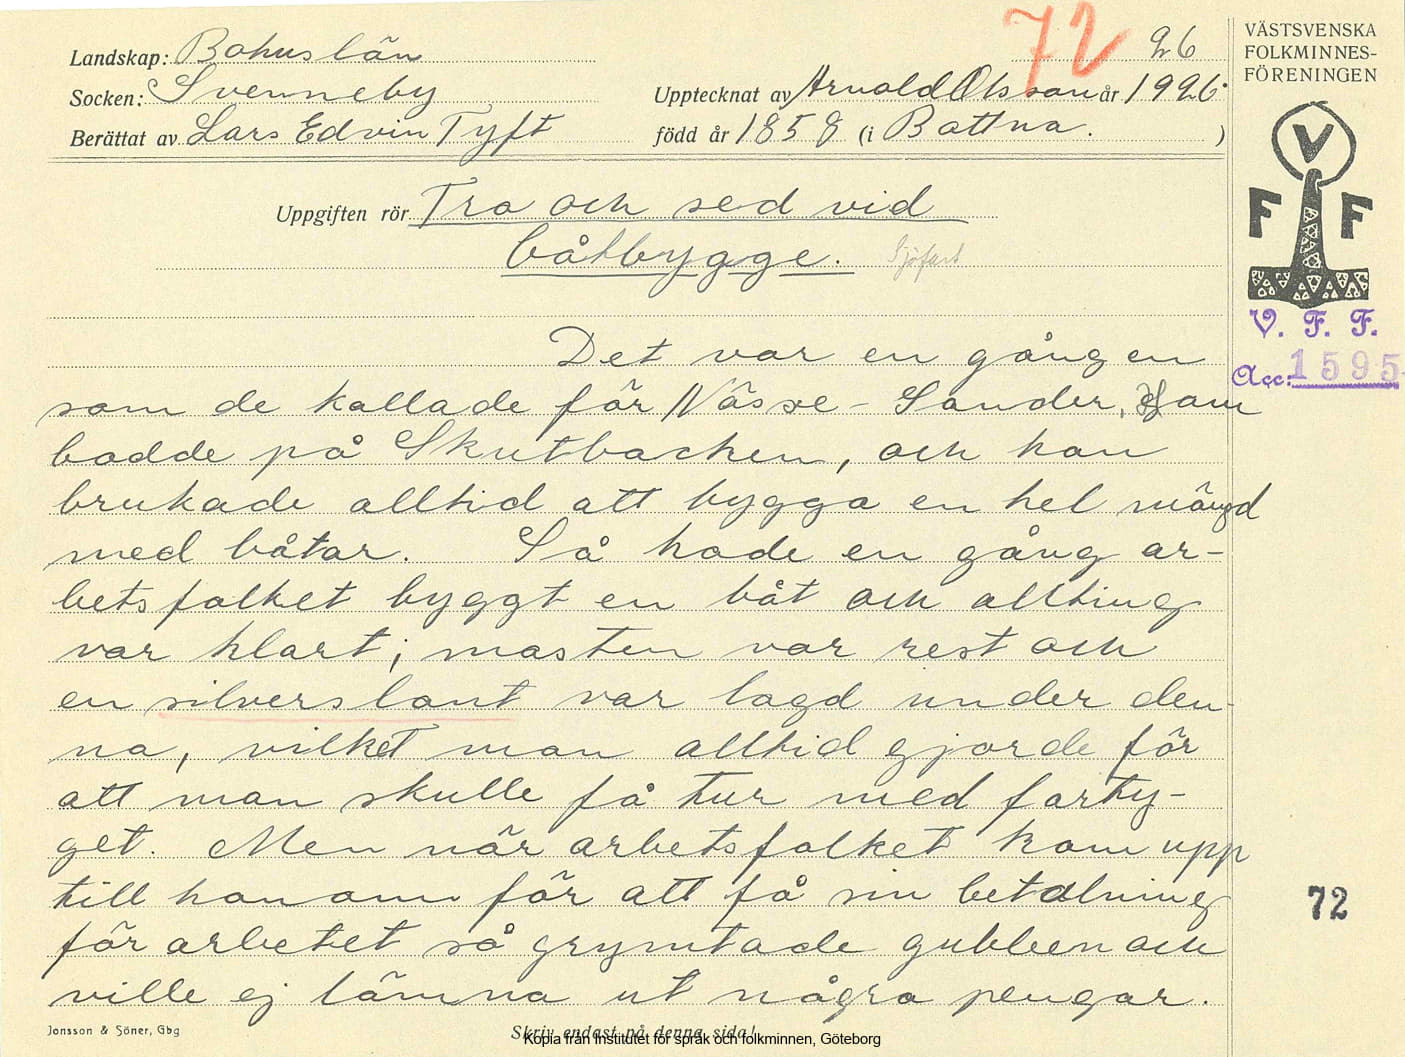 72
26
Landskap: Bohuslän
Socken: Svenneby
Upptecknat av Arnold Olsson år 1926.
Berättat av Lars Edvin Tyft
född år 1858 (i Bottna. )
Uppgiften rör Tro och sed vid
båtbygge. Sjöfart
Det var en gång en
som de kallade för Nässe-Sander, som
bodde på Skutbacken, och han
brukade alltid att bygga en hel mängd
med båtar. Så hade en gång ar-
betsfolket byggt en båt och allting
var klart; masten var rest och
en silverslant var lagd under den-
na, vilket man alltid gjorde för
att man skulle få tur med farty-
get. Men när arbetsfolket kom upp
till honom för att få sin betalning
för arbetet så grymtade gubben och
ville ej lämna ut några pengar.
Jonsson & Söner, Gbg
Skriv endast på denna sida!
Kopia från Institutet för språk och folkminnen, Göteborg
VÄSTSVENSKA
FOLKMINNES-
FÖRENINGEN
V
F F
V. F. F.
Acc: 1595
72